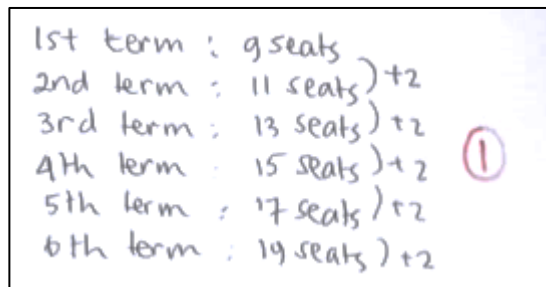 1st term : 9 seats
2nd term : 11 seats ) +2
3rd term : 13 seats ) +2
4th term : 15 seats ) + 2 ①
5th term : 17 seats ) +2
6th term : 19 seats ) +2